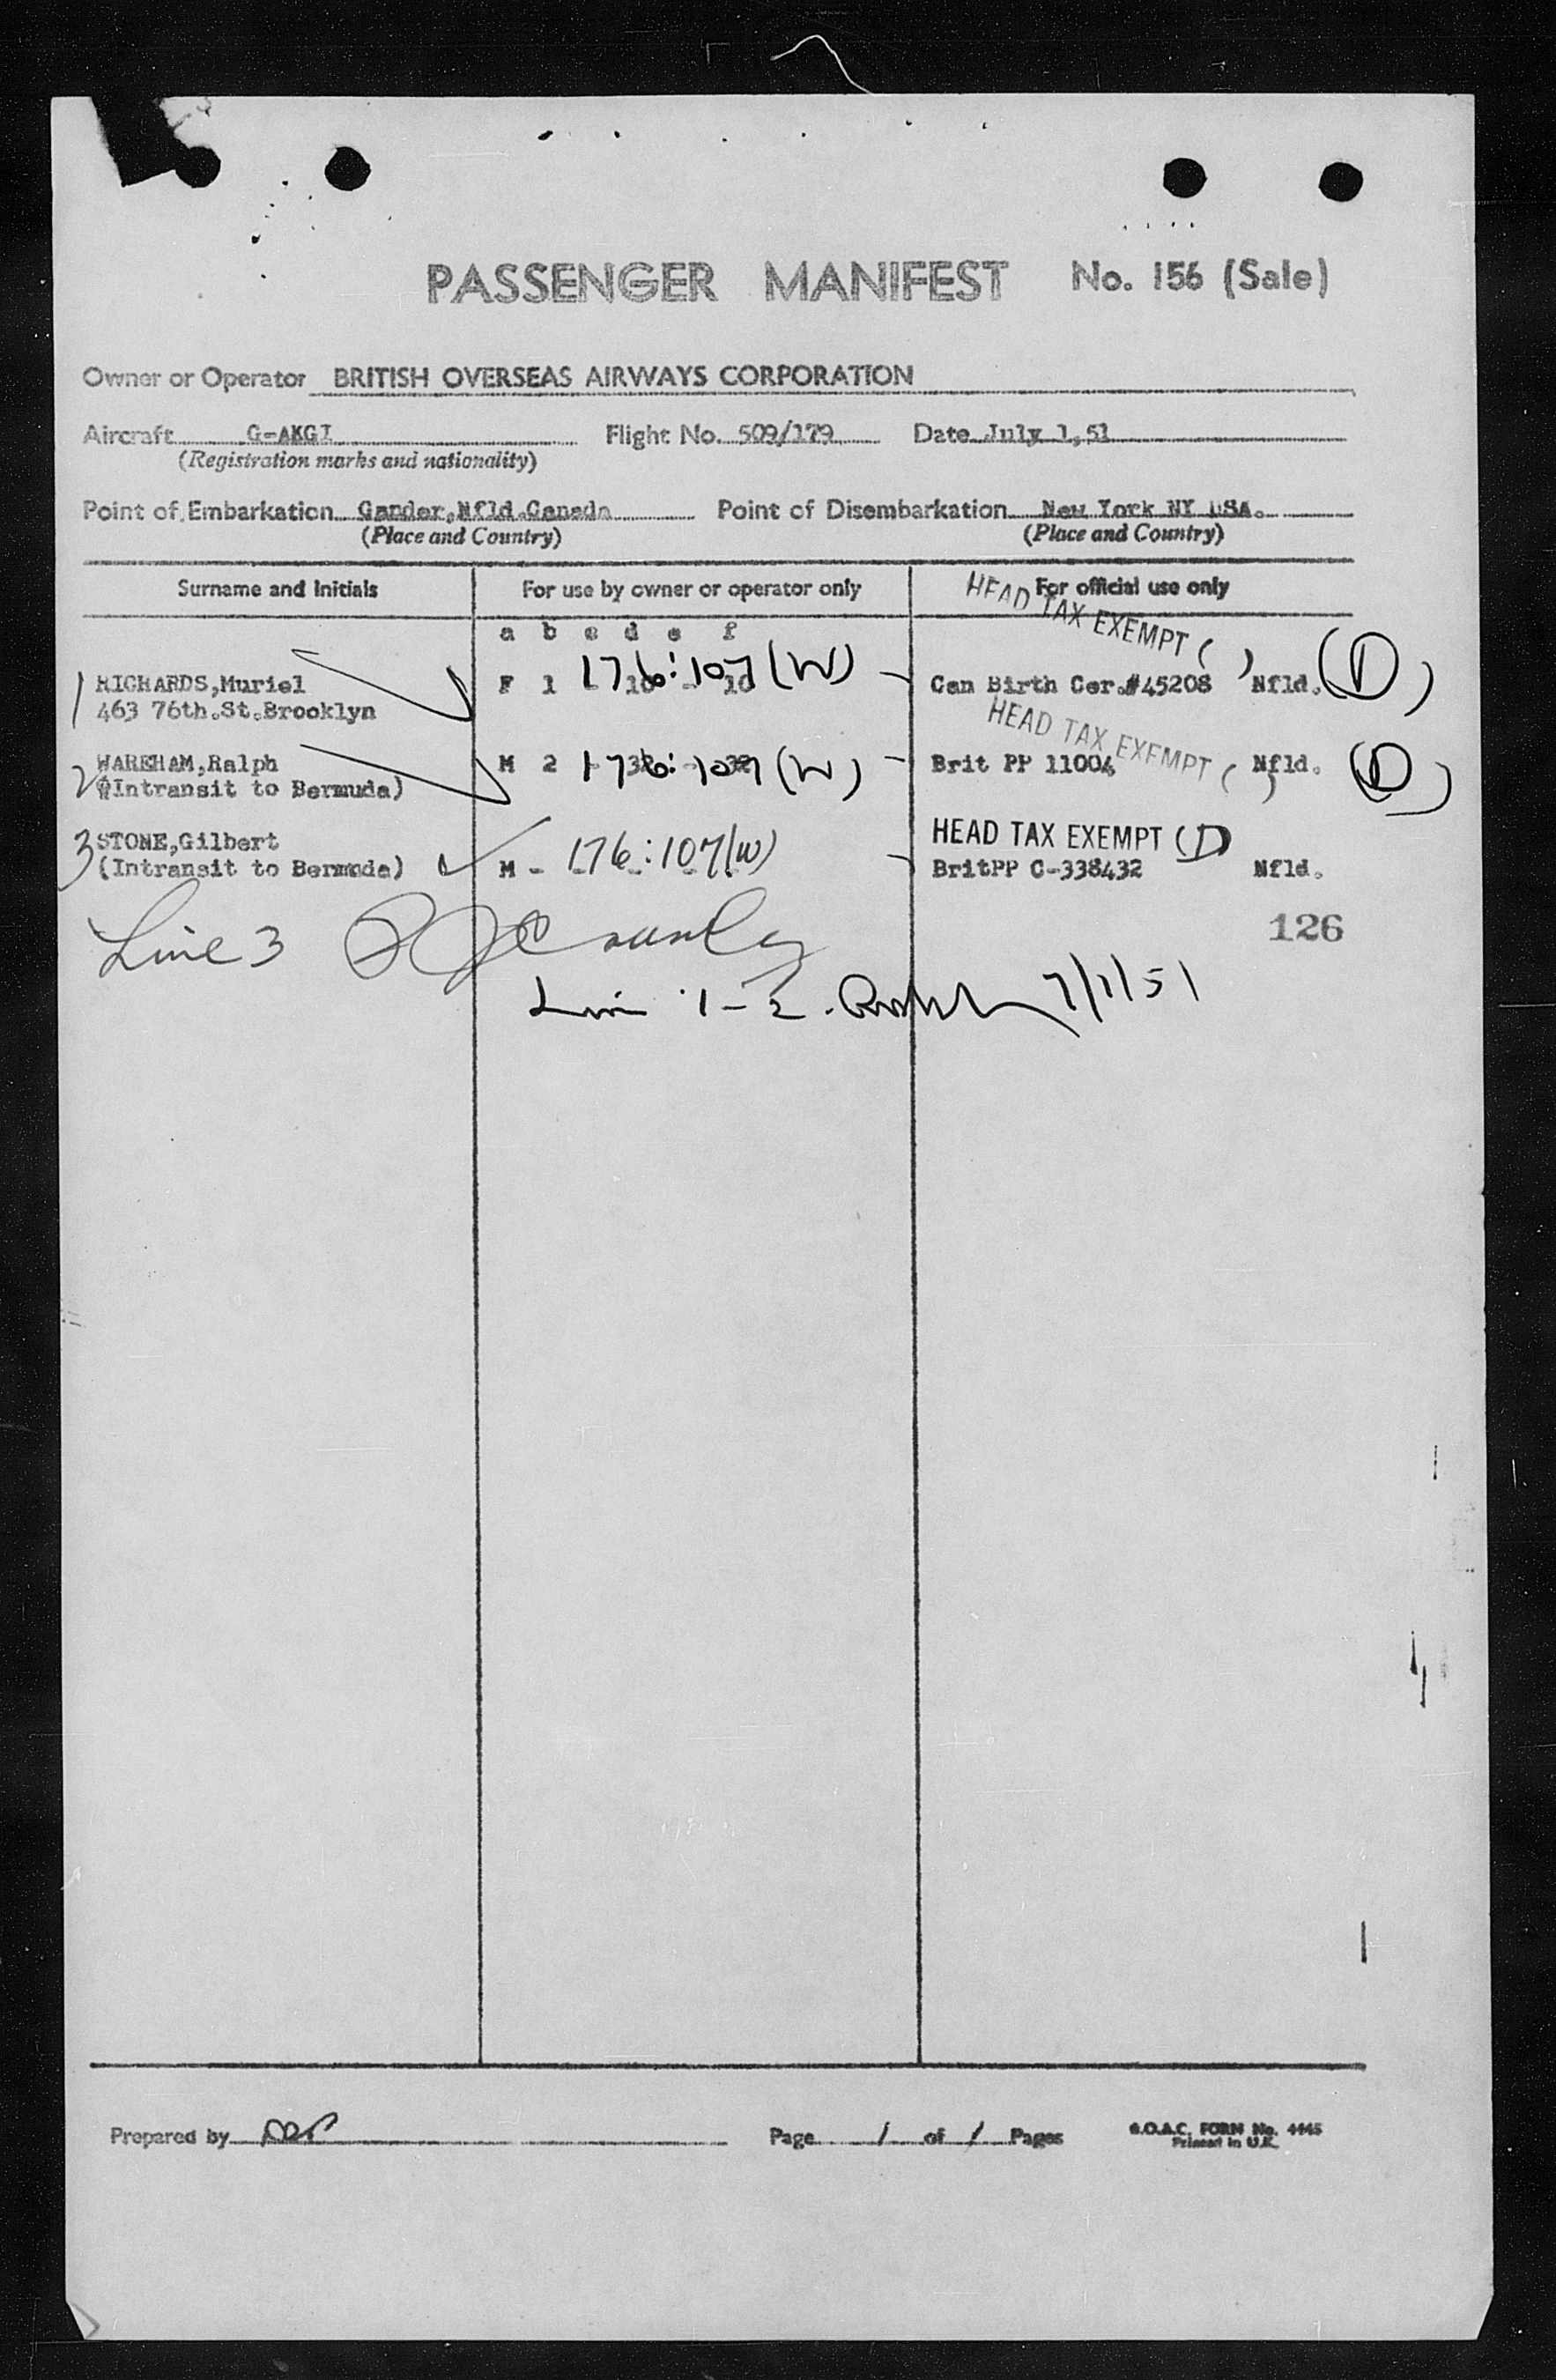 PASSENGER MANIFEST No. 156 (Sale)
Owner or Operator BRITISH OVERSEAS AIRWAYS CORPORATION
Aircraft G-AKGI Flight No. 509/179 Date July 1,51
(Registration marks and nationality)
Point of Embarkation Gander,Nfld.Canada Point of Disembarkation New York NY USA.
(Place and Country) (Place and Country)
Surname and Initials For use by owner or operator only For official use only
HEAD TAX EXEMPT ( )
a b c d e f
1 RICHARDS,Muriel F 1 176:107 (W) Can Birth Cer.#45208 Nfld. (D)
463 76th.St.Brooklyn
HEAD TAX EXEMPT ( )
2 WAREHAM,Ralph M 2 176:107 (W) Brit PP 11004 Nfld. (D)
(Intransit to Bermuda)
HEAD TAX EXEMPT (D)
3 STONE,Gilbert M - 176:107(W)
(Intransit to Bermuda) BritPP C-338432 Nfld.
126
Line 3
Line 1-2. 7/1/51
Prepared by Page 1 of 1 Pages B.O.A.C. FORM No. 4445
Printed in U.K.